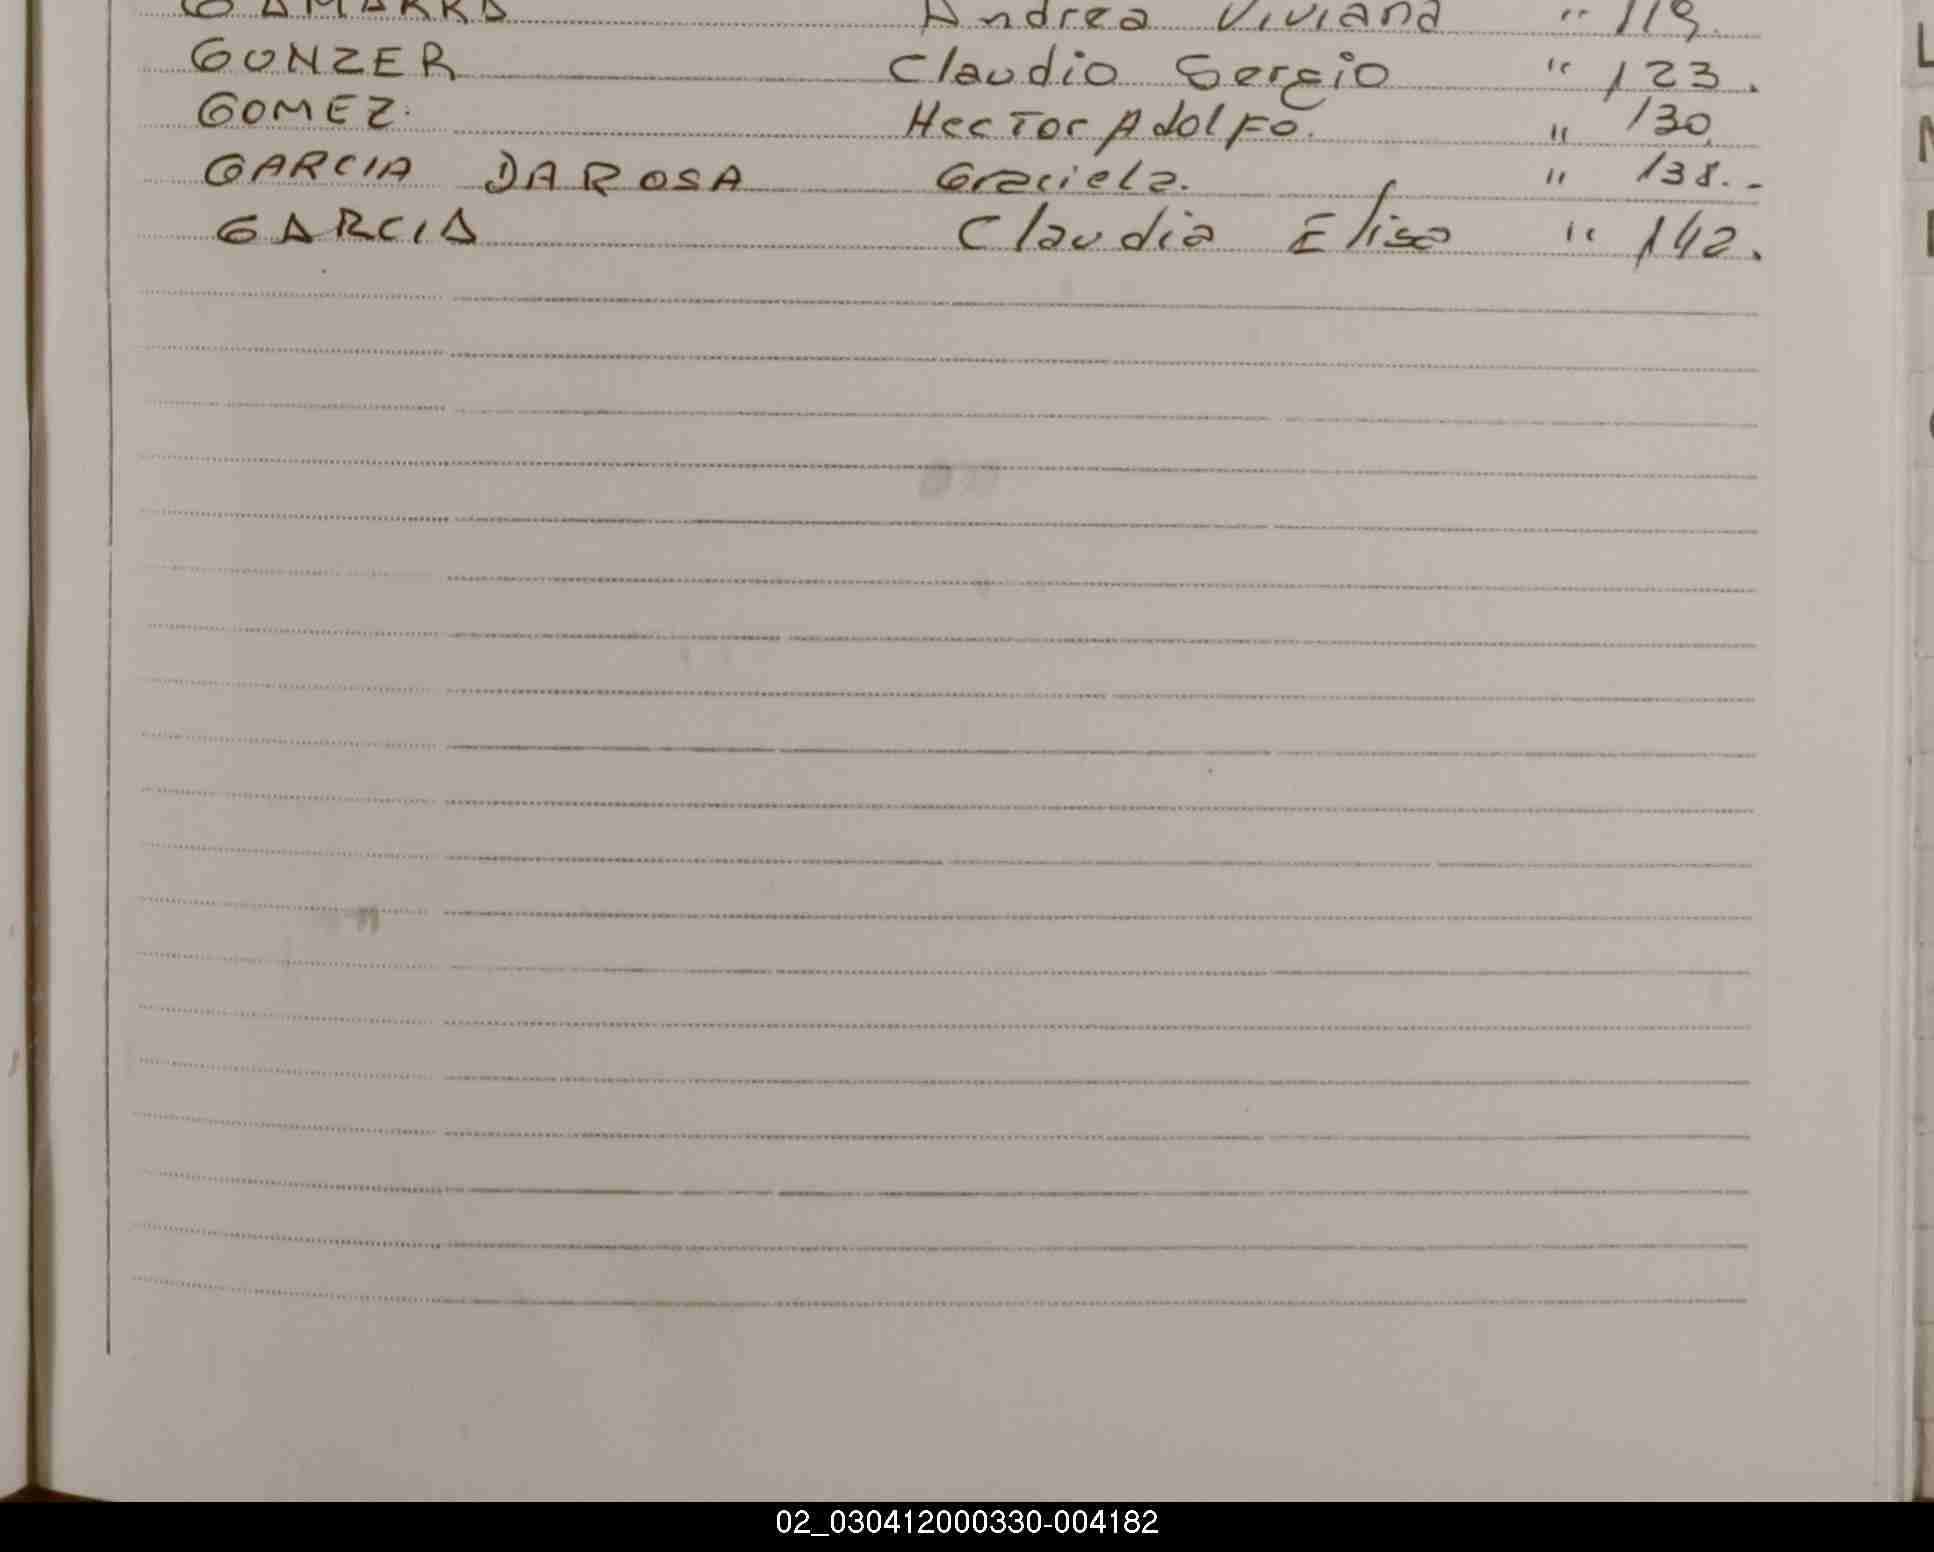 GAMARRA Andrea Viviana " 119.
GONZER Claudio Sergio " 123.
GOMEZ. Hector Adolfo. " 130.
GARCIA DA ROSA Graciela. " 138.-
GARCIA Claudia Elisa " 142.
02_030412000330-004182